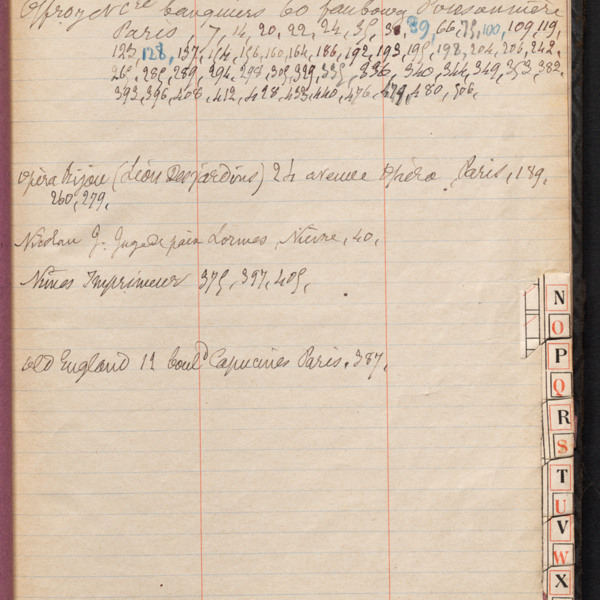 Offroy & Cie banquiers 60 faubourg Poissonnière
Paris, 7, 14, 20, 22, 24, 35, 89, 66, 75, 100, 109, 119,
123, 128, 137, 154, 156, 160, 164, 186, 192, 193, 195, 198, 204, 206, 242,
265, 285, 289, 294, 298, 305, 329, 335, 336, 340, 344, 349, 353, 382,
393, 396, 408, 412, 428, 433, 440, 476, 479, 480, 506,
Opéra Bijou (Léon Desjardins) 24 avenue Opéra Paris, 189,
260, 279,
Nicolau J. Juge de paix Lormes Nièvre, 40,
Nunes Imprimeur 375, 397, 405,
Old England 12 boulᵈ Capucines Paris, 387,
N
O
P
Q
R
S
T
U
V
W
X